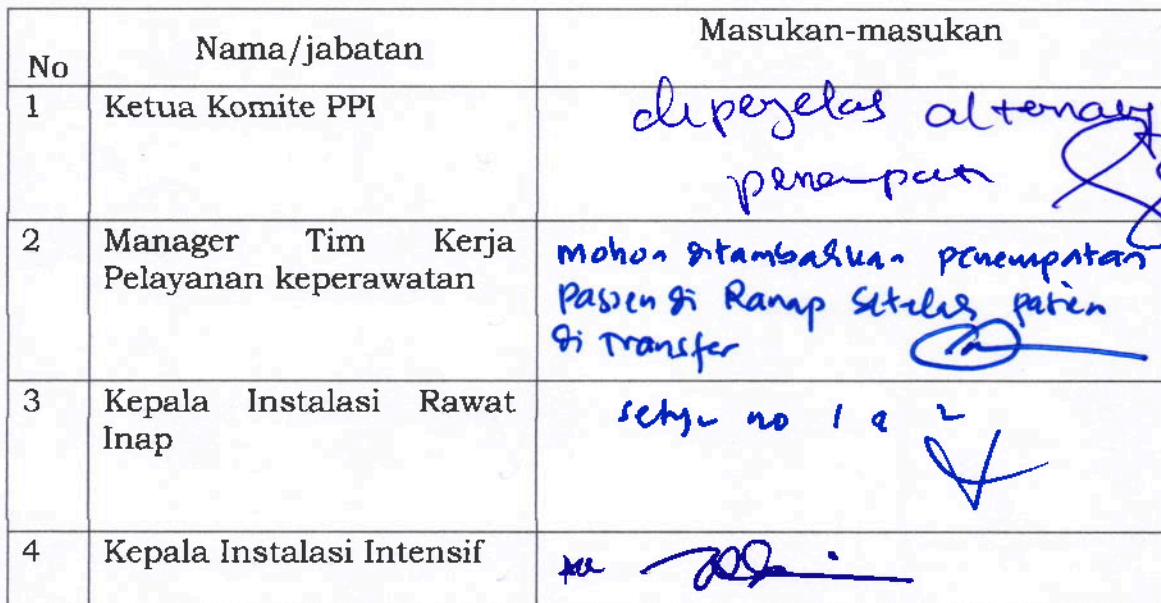 No Nama/jabatan Masukan-masukan
1 Ketua Komite PPI
diperjelas alternatif
penempatan
2 Manager Tim Kerja
Pelayanan keperawatan
mohon ditambahkan penempatan
pasien di Ranap setelah pasien
di Transfer
3 Kepala Instalasi Rawat
Inap
setuju no 1 & 2
4 Kepala Instalasi Intensif